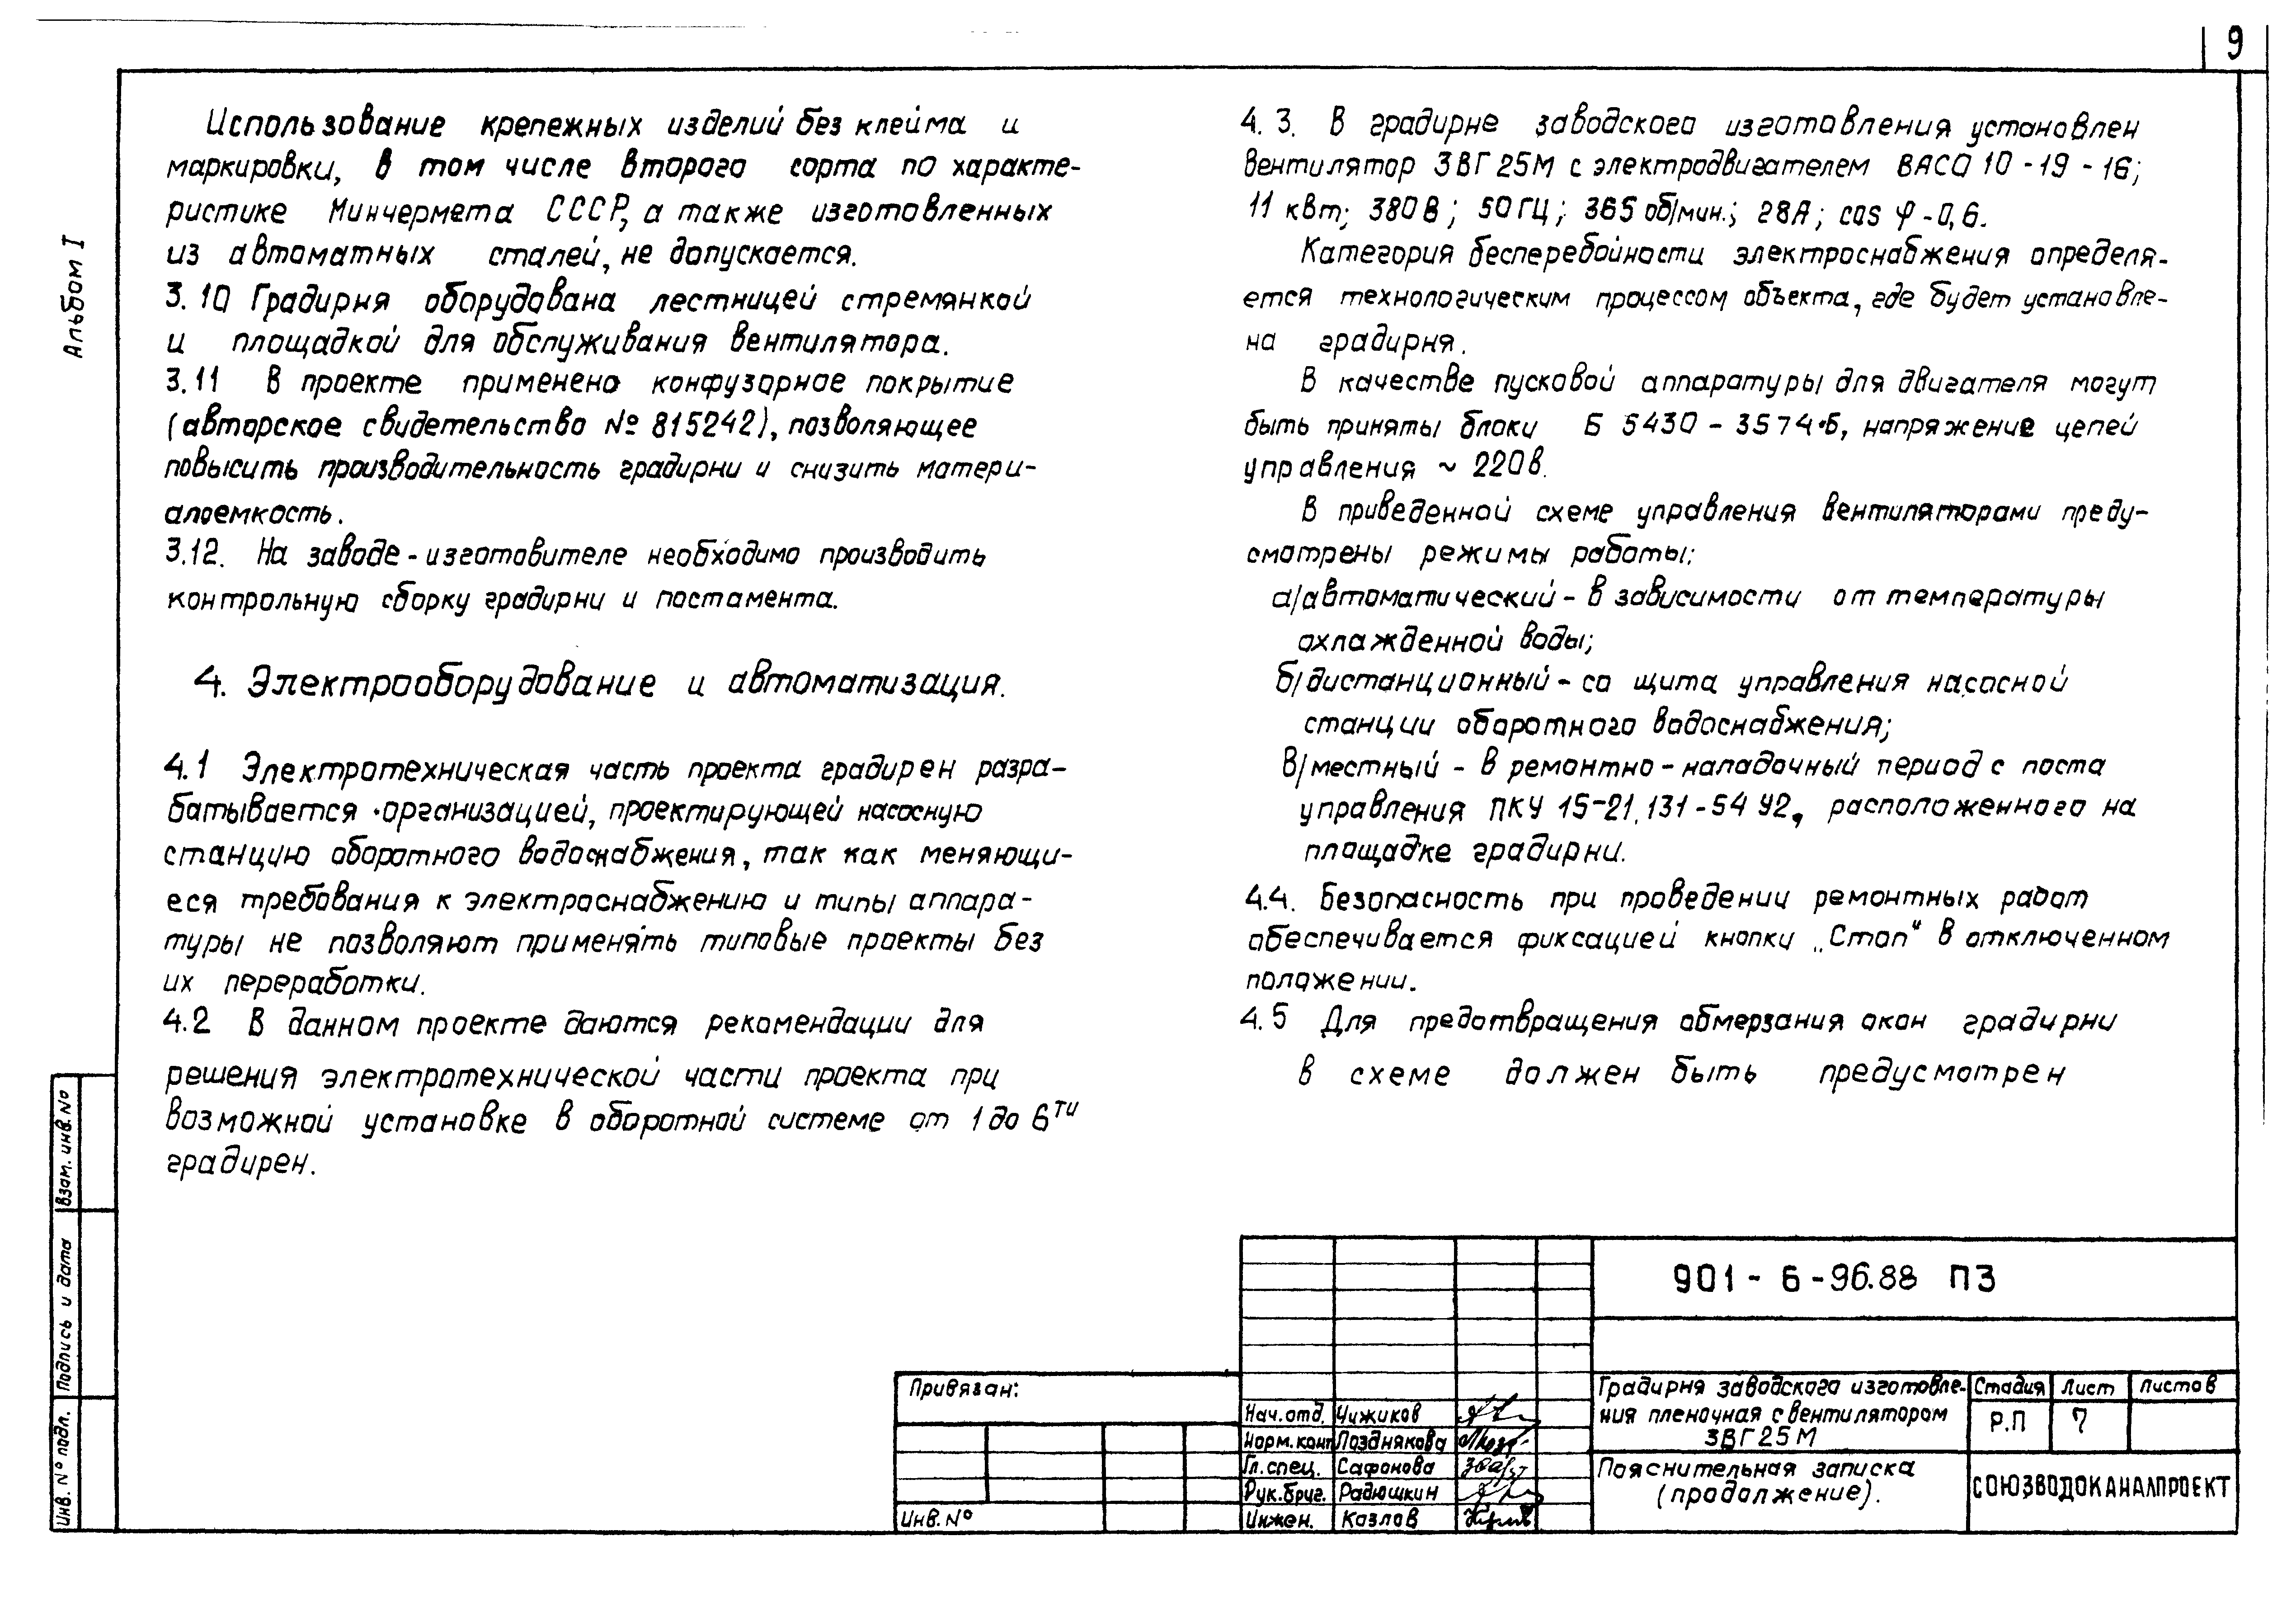 9
Альбом I
Использование крепежных изделий без клейма и
маркировки, в том числе второго сорта по характе-
ристике Минчермета СССР, а также изготовленных
из автоматных сталей, не допускается.
3.10 Градирня оборудована лестницей стремянкой
и площадкой для обслуживания вентилятора.
3.11 В проекте применено конфузорное покрытие
(авторское свидетельство № 815242), позволяющее
повысить производительность градирни и снизить матери-
алоемкость.
3.12. На заводе-изготовителе необходимо производить
контрольную сборку градирни и постамента.
4. Электрооборудование и автоматизация.
4.1 Электротехническая часть проекта градирен разра-
батывается организацией, проектирующей насосную
станцию оборотного водоснабжения, так как меняющи-
еся требования к электроснабжению и типы аппара-
туры не позволяют применять типовые проекты без
их переработки.
4.2 В данном проекте даются рекомендации для
решения электротехнической части проекта при
возможной установке в оборотной системе от 1 до 6ти
градирен.
4.3. В градирне заводского изготовления установлен
вентилятор 3ВГ25М с электродвигателем ВАСО 10-19-16;
11 квт; 380В; 50ГЦ; 365 об/мин.; 28А; cos φ-0,6.
Категория бесперебойности электроснабжения определя-
ется технологическим процессом объекта, где будет установле-
на градирня.
В качестве пусковой аппаратуры для двигателя могут
быть приняты блоки Б 5430-3574·Б, напряжение цепей
управления ~ 220в.
В приведенной схеме управления вентиляторами преду-
смотрены режимы работы:
а/автоматический - в зависимости от температуры
охлажденной воды;
б/дистанционный - со щита управления насосной
станции оборотного водоснабжения;
в/местный - в ремонтно-наладочный период с поста
управления ПКУ 15-21.131-54 У2, расположенного на
площадке градирни.
4.4. Безопасность при проведении ремонтных работ
обеспечивается фиксацией кнопки „Стоп“ в отключенном
положении.
4.5 Для предотвращения обмерзания окон градирни
в схеме должен быть предусмотрен
Взам. инв. №
Подпись и дата
Инв. № подл.
Привязан:
Инв. №
Нач. отд. Чижиков
Норм. конт. Позднякова
Гл. спец. Сафонова
Рук. бриг. Радюшкин
Инжен. Козлов
901-6-96.88 ПЗ
Градирня заводского изготовле-
ния пленочная с вентилятором
3ВГ25М
Стадия Лист Листов
Р.П 7
Пояснительная записка
(продолжение).
СОЮЗВОДОКАНАЛПРОЕКТ